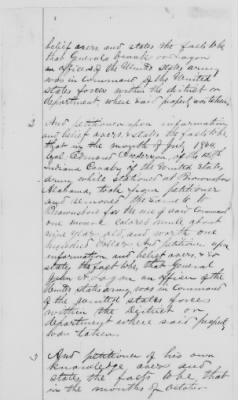 belief avers and states the facts to be
that General Frank Wagon
an officer of the United States army
was in command of the United
States forces within the district or
department where said property was taken.
2 And petitioner upon information
and belief avers & states the facts to be
that in the month of July 1864
Col. Edmond Anderson, of the
Indiana Cavalry of the United States
army while stationed at Brownsboro
Alabama, took from petitioner
and removed the same to
Brownsboro for the use of said command
one mouse colored mule about
nine years old, and worth one
hundred dollars And petitioner upon
information and belief avers & so
states the facts to be, that General
John A Logan an officer of the
United States army, was in command
of the United States forces
within the district or
department where said property
was taken.
3 And petitioner of his own
knowledge avers and
states the facts to be that
in the months of October